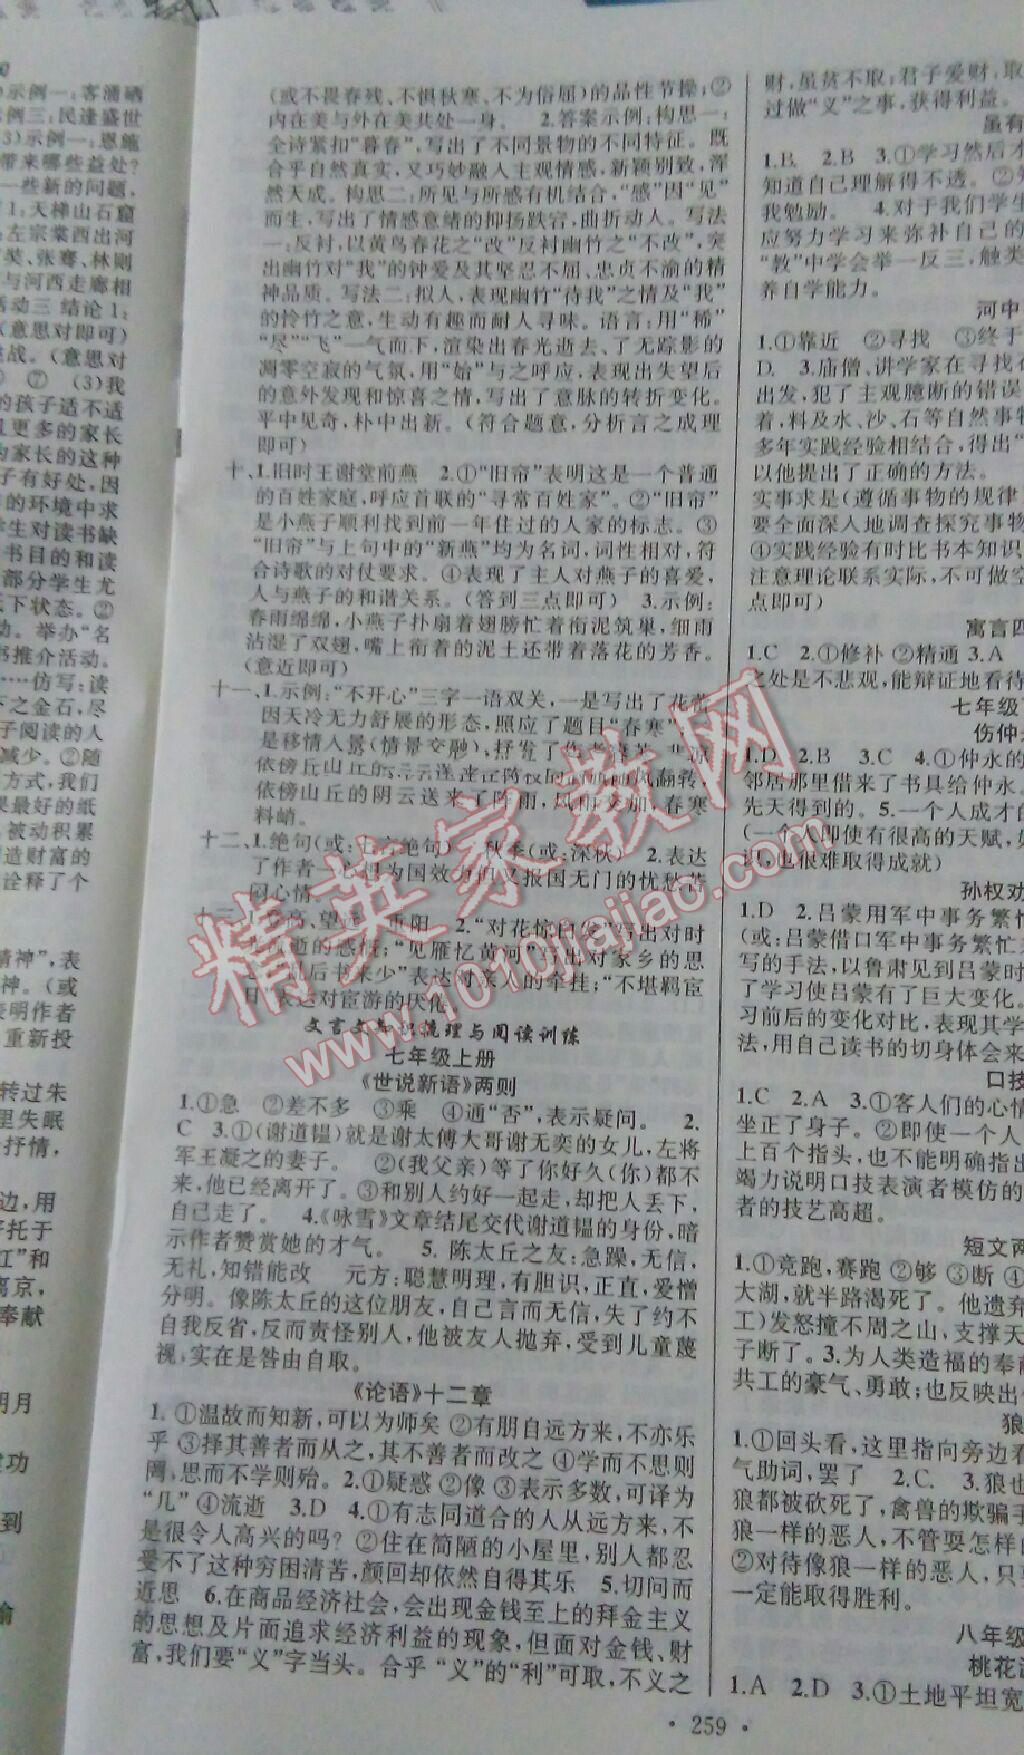 )示例一:客涌硒
示例三:民逢盛世
(3)示例一:恩施
带来哪些益处?
一些新的问题,
左宗棠西出河
与河西走廊相
活动三 结论1:
(意思对即可)
战。(意思对
⑦ (3)我
的孩子适不适
更多的家长
为家长的这种
子有好处,因
的环境中求
学生对读书缺
书目的和读
部分学生尤
下状态。②
动。举办“名
书推介活动。
……仿写:读
下之金石,尽
子阅读的人
减少。②随
方式,我们
果是最好的纸
被动积累
造财富的
诠释了个
精神”,表
神。(或
表明作者
重新投
转过朱
里失眠
抒情,
边,用
托于
红”和
离京,
奉献
明月
功
到
(或不畏春残、不惧秋寒、不为俗屈)的品性节操;②
内在美与外在美共处一身。 2.答案示例:构思一:
全诗紧扣“暮春”,写出了不同景物的不同特征。既
合乎自然真实,又巧妙融入主观情感,新颖别致,浑
然天成。构思二:所见与所感有机结合,“感”因“见”
而生,写出了情感意绪的抑扬跌宕,曲折动人。写法
一:反衬,以黄鸟春花之“改”反衬幽竹之“不改”,突
出幽竹对“我”的钟爱及其坚忍不屈、忠贞不渝的精
神品质。写法二:拟人,表现幽竹“待我”之情及“我”
的怜竹之意,生动有趣而耐人寻味。语言:用“稀”
“尽”“飞”一气而下,渲染出春光逝去、了无踪影的
凋零空寂的气氛,用“始”与之呼应,表现出失望后
的意外发现和惊喜之情,写出了意脉的转折变化。
平中见奇,朴中出新。(符合题意,分析言之成理
即可)
十、1.旧时王谢堂前燕 2.①“旧帘”表明这是一个普通
的百姓家庭,呼应首联的“寻常百姓家”。②“旧帘”
是小燕子顺利找到前一年住过的人家的标志。③
“旧帘”与上句中的“新燕”均为名词,词性相对,符
合诗歌的对仗要求。④表现了主人对燕子的喜爱,
人与燕子的和谐关系。(答到三点即可) 3.示例:
春雨绵绵,小燕子扑扇着翅膀忙着衔泥筑巢,细雨
沾湿了双翅,嘴上衔着的泥土还带着落花的芳香。
(意近即可)
十一、1.示例:“不开心”三字一语双关,一是写出了花蕾
因天冷无力舒展的形态,照应了题目“春寒”
是移情入景(情景交融),抒发了
依傍山丘的阴云送来了阵雨,风雨交加,春寒
料峭。
十二、1.绝句(或:七言绝句) 秋季(或:深秋) 2.表达
了作者一心想为国效力但又报国无门的忧愁苦
闷心情。
十三、1.登高、望远 重阳 2.“对花惊白发”写出对时
光流逝的感慨;“见雁忆黄河”写出对家乡的思
念;“乱后书来少”表达对亲人的牵挂;“不堪羁宦
表达对宦游的厌倦
文言文知识梳理与阅读训练
七年级上册
《世说新语》两则
1.①急 ②差不多 ③乘 ④通“否”,表示疑问。 2.
C 3.①(谢道韫)就是谢太傅大哥谢无奕的女儿,左将
军王凝之的妻子。 ②(我父亲)等了你好久(你)都不
来,他已经离开了。③和别人约好一起走,却把人丢下,
自己走了。 4.《咏雪》文章结尾交代谢道韫的身份,暗
示作者赞赏她的才气。 5. 陈太丘之友:急躁,无信,
无礼,知错能改 元方:聪慧明理,有胆识,正直,爱憎
分明。像陈太丘的这位朋友,自己言而无信,失了约不
自我反省,反而责怪别人,他被友人抛弃,受到儿童蔑
视,实在是咎由自取。
《论语》十二章
1. ①温故而知新,可以为师矣 ②有朋自远方来,不亦乐
乎 ③择其善者而从之,其不善者而改之 ④学而不思则
罔,思而不学则殆。2.①疑惑 ②像 ③表示多数,可译为
“几” ④流逝 3.D 4.①有志同道合的人从远方来,不
是很令人高兴的吗? ②住在简陋的小屋里,别人都忍
受不了这种穷困清苦,颜回却依然自得其乐 5.切问而
近思 6.在商品经济社会,会出现金钱至上的拜金主义
的思想及片面追求经济利益的现象,但面对金钱、财
富,我们要“义”字当头。合乎“义”的“利”可取,不义之
财,虽贫不取;君子爱财,取
过做“义”之事,获得利益。
虽有
1.B 2.B 3.①学习然后才
知道自己理解得不透。②知
我勉励。 4.对于我们学生
应努力学习来弥补自己的
“教”中学会举一反三,触类
养自学能力。
河中
1.①靠近 ②寻找 ③终于
D. 3.庙僧、讲学家在寻找石
出发,犯了主观臆断的错误
着,料及水、沙、石等自然事物
多年实践经验相结合,得出“
以他提出了正确的方法。
实事求是(遵循事物的规律
要全面深入地调查探究事物
①实践经验有时比书本知识
注意理论联系实际,不可做空
点即可)
寓言四
1.C 2.①修补 ②精通 3.A
之处是不悲观,能辩证地看待
七年级
伤仲永
1.D 2.B 3.C 4.①仲永的
邻居那里借来了书具给仲永。
先天得到的。5.一个人成才的
(一个人即使有很高的天赋,如
以,也很难取得成就)
孙权劝
1.D 2.吕蒙用军中事务繁忙
(或:吕蒙借口军中事务繁忙
写的手法,以鲁肃见到吕蒙时
了学习使吕蒙有了巨大变化。
习前后的变化对比,表现其学
法,用自己读书的切身体会来
口技
1.C 2.A 3.①客人们的心情
坐正了身子。②即使一个人
上百个指头,也不能明确指出
竭力说明口技表演者模仿的
者的技艺高超。
短文两
1.①竞跑,赛跑 ②够 ③断 ④
大湖,就半路渴死了。他遗弃
工)发怒撞不周之山,支撑天
子断了。3.为人类造福的奉献
共工的豪气、勇敢;也反映出
狼
1.①回头看,这里指向旁边看
气助词,罢了 2.C. 3.狼也
狼都被砍死了,禽兽的欺骗手
狼一样的恶人,不管耍怎样的
②对待像狼一样的恶人,只
一定能取得胜利。
八年级
桃花源
1.A 2.D 3.①土地平坦宽
· 259 ·
精英家教网
www.1010jiajiao.com